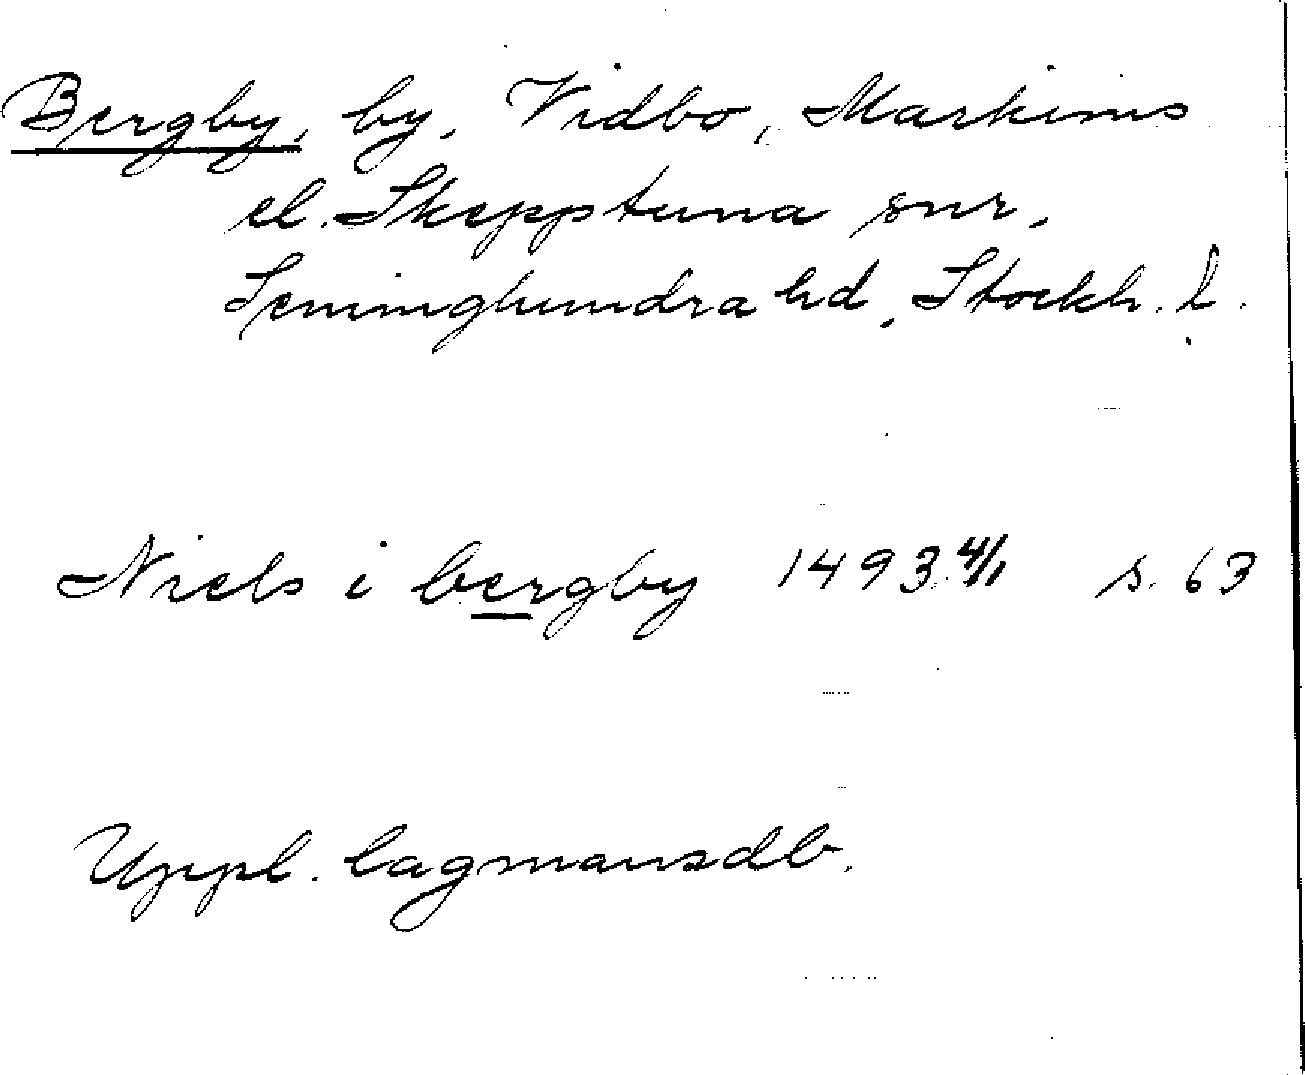 Bergby, by, Vidbo, Markims
el. Skepptuna snr,
Seminghundra hd, Stockh. l.
Niels i bergby 1493 4/1 s. 63
Uppl. lagmansdb.